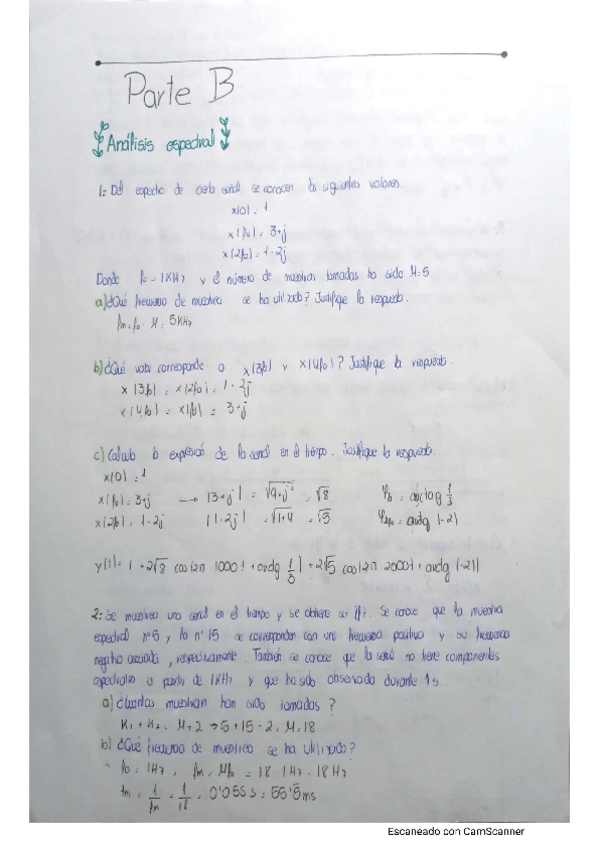 Parte B
Análisis espectral
1: Del espectro de cierta señal se conocen los siguientes valores.
x(0) = 1
x(f0) = 3+j
x(2f0) = 1-2j
Donde f0 = 1KHz y el número de muestras tomadas ha sido M=5
a) ¿Qué frecuencia de muestreo se ha utilizado? Justifique la respuesta.
fm = f0 · M = 5KHz
b) ¿Qué valor corresponde a x(3f0) y x(4f0)? Justifique la respuesta.
x(3f0) = x(2f0) = 1-2j
x(4f0) = x(f0) = 3+j
c) Calcula la expresión de la señal en el tiempo. Justifique la respuesta.
x(0) = 1
x(f0) = 3+j → |3+j| = √9+j² = √8 φf0 = arctg 1/3
x(2f0) = 1-2j |1-2j| = √1+4 = √5 φ2f0 = arctg (-2)
y(t) = 1 + 2√8 cos(2π 1000t + arctg 1/3) + 2√5 cos(2π 2000t + arctg(-2))
2: Se muestrea una señal en el tiempo y se obtiene su fft. Se conoce que la muestra
espectral nº5 y la nº15 se corresponden con una frecuencia positiva y su frecuencia
negativa asociada, respectivamente. También se conoce que la señal no tiene componentes
espectrales a partir de 1KHz y que ha sido observada durante 1s.
a) ¿Cuántas muestran han sido tomadas?
K1 + K2 = M+2 → 5+15-2 = M = 18
b) ¿Qué frecuencia de muestreo se ha utilizado?
f0 = 1Hz, fm = Mf0 = 18 · 1Hz = 18Hz
tm = 1/fm = 1/18 = 0'055 s = 55'5ms
Escaneado con CamScanner